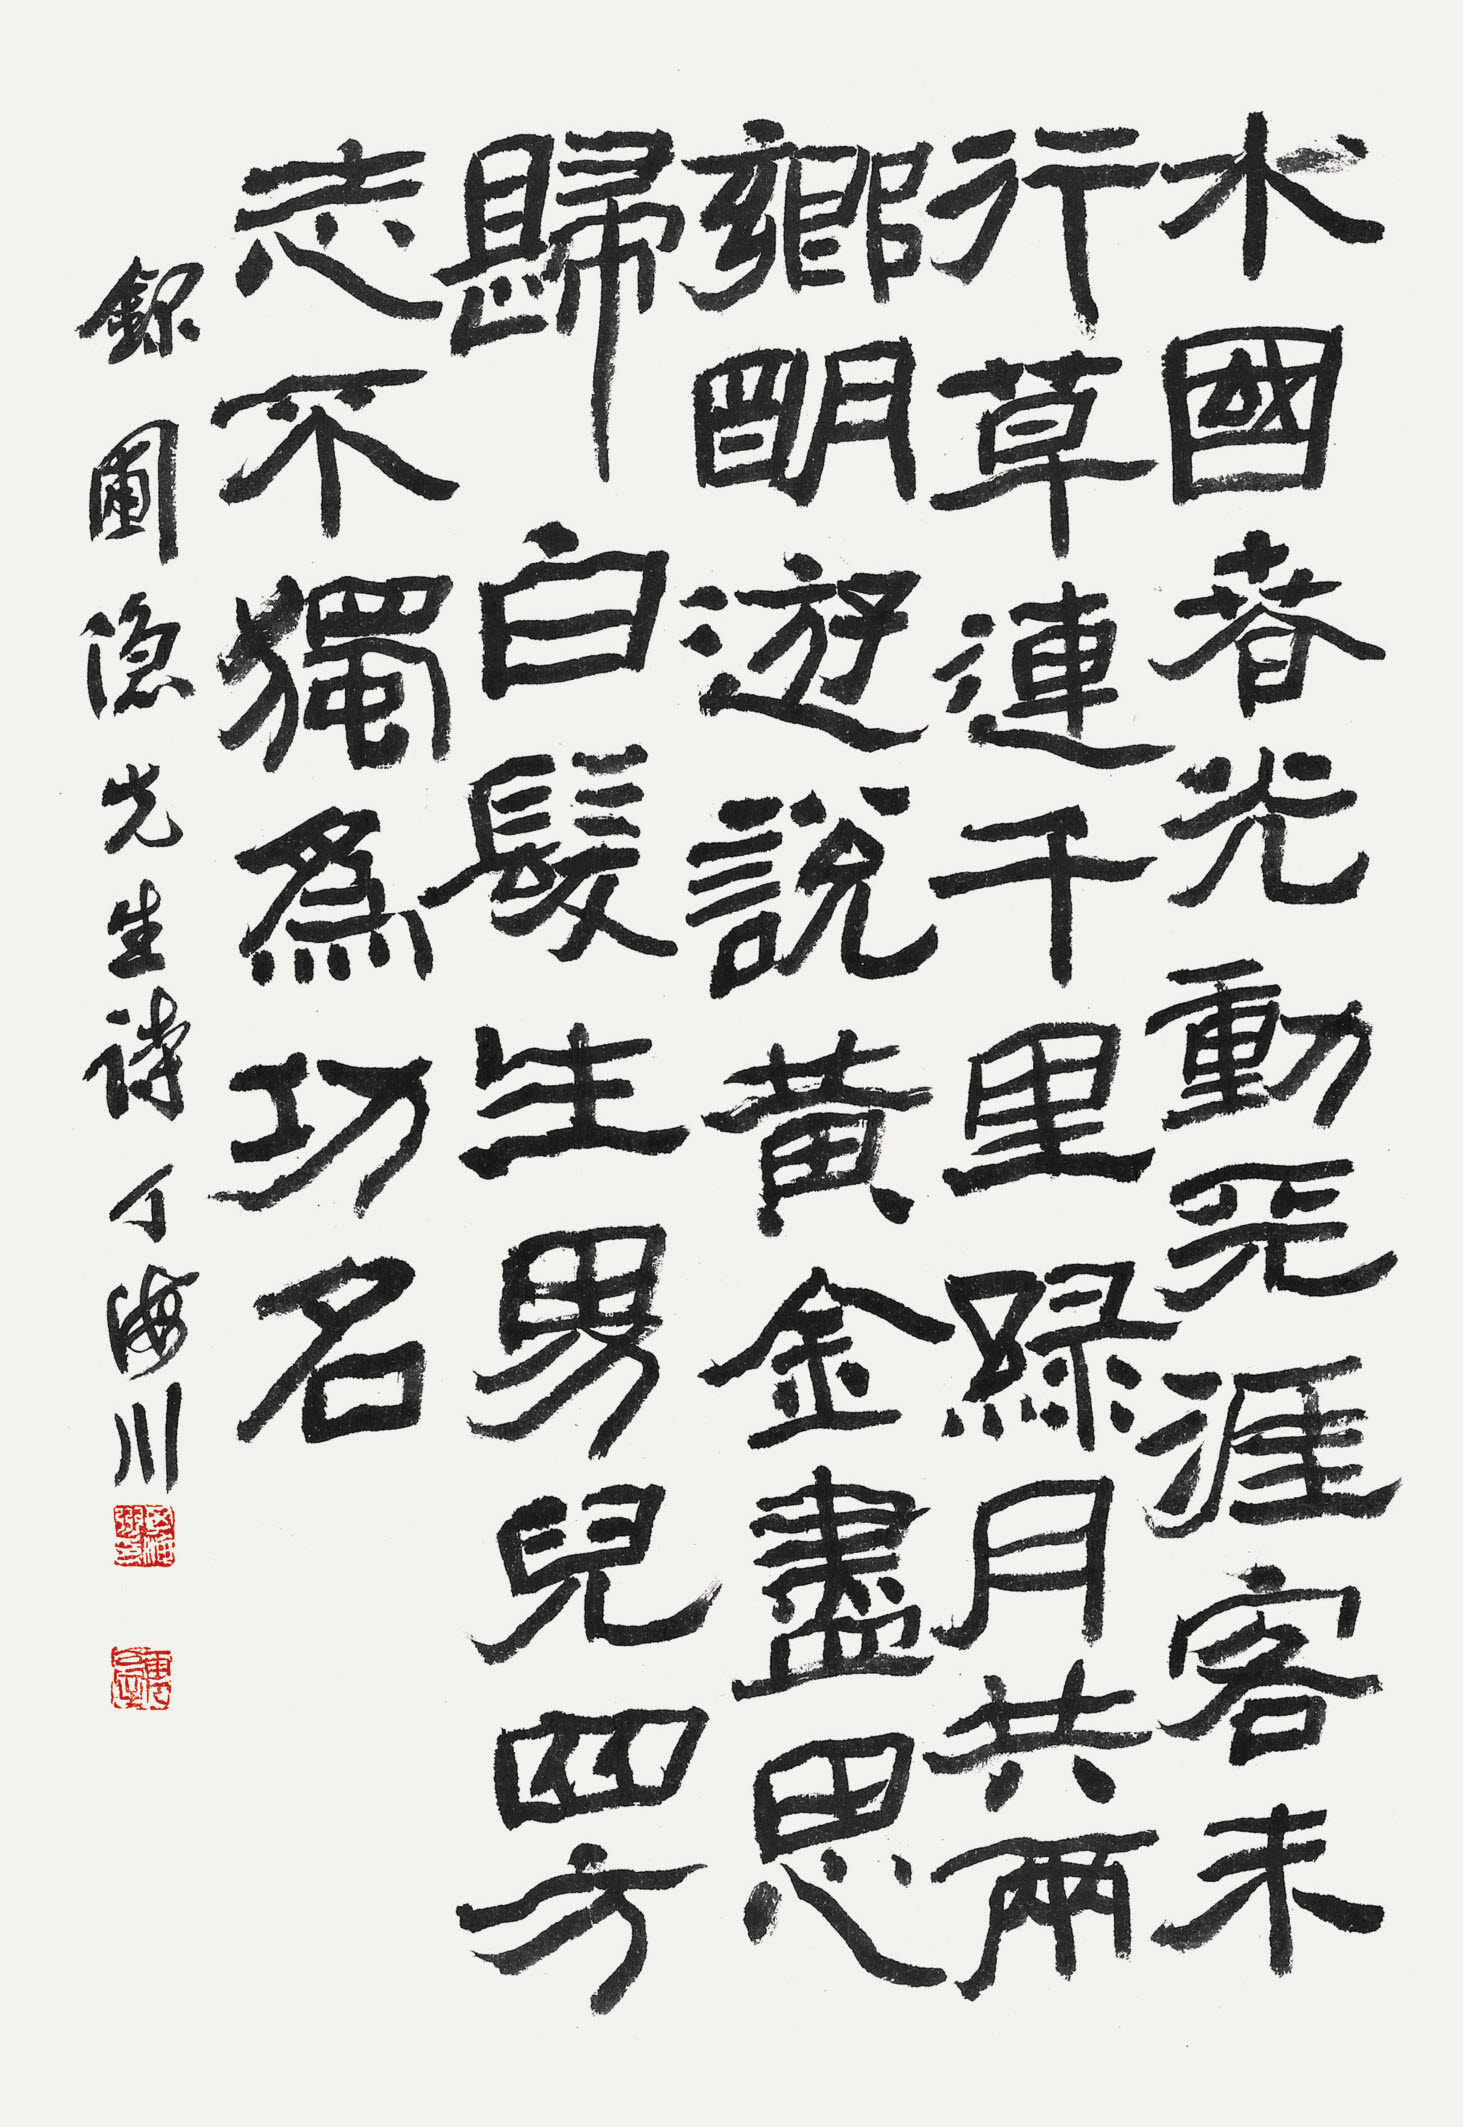 水國春光動天涯客未
行草連千里綠月共兩
鄉明遊說黃金盡思
歸白髮生男兒四方
志不獨為功名
錄圃隱先生詩丁海川